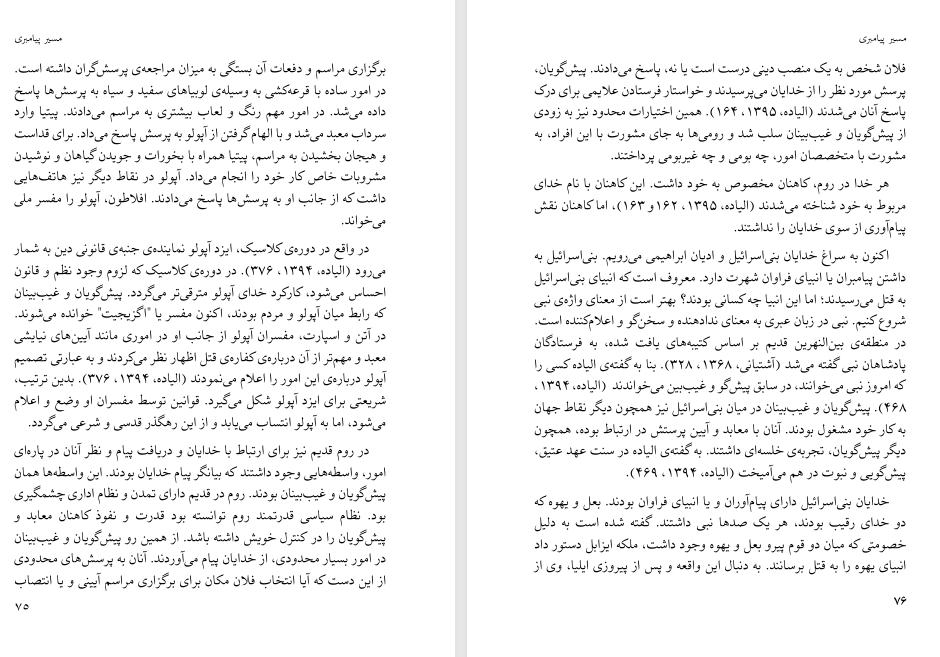 مسیر پیامبری
برگزاری مراسم و دفعات آن بستگی به میزان مراجعه‌ی پرسش‌گران داشته است.
در امور ساده با قرعه‌کشی به وسیله‌ی لوبیاهای سفید و سیاه به پرسش‌ها پاسخ
داده می‌شد. در امور مهم رنگ و لعاب بیشتری به مراسم می‌دادند. پیتیا وارد
سرداب معبد می‌شد و با الهام‌گرفتن از آپولو به پرسش پاسخ می‌داد. برای قداست
و هیجان بخشیدن به مراسم، پیتیا همراه با بخورات و جویدن گیاهان و نوشیدن
مشروبات خاص کار خود را انجام می‌داد. آپولو در نقاط دیگر نیز هاتف‌هایی
داشت که از جانب او به پرسش‌ها پاسخ می‌دادند. افلاطون، آپولو را مفسر ملی
می‌خواند.
در واقع در دوره‌ی کلاسیک، ایزد آپولو نماینده‌ی جنبه‌ی قانونی دین به شمار
می‌رود (الیاده، ۱۳۹۴، ۳۷۶). در دوره‌ی کلاسیک که لزوم وجود نظم و قانون
احساس می‌شود، کارکرد خدای آپولو مترقی‌تر می‌گردد. پیش‌گویان و غیب‌بینان
که رابط میان آپولو و مردم بودند، اکنون مفسر یا "اگزیجیت" خوانده می‌شوند.
در آتن و اسپارت، مفسران آپولو از جانب او در اموری مانند آیین‌های نیایشی
معبد و مهم‌تر از آن درباره‌ی کفاره‌ی قتل اظهار نظر می‌کردند و به عبارتی تصمیم
آپولو درباره‌ی این امور را اعلام می‌نمودند (الیاده، ۱۳۹۴، ۳۷۶). بدین ترتیب،
شریعتی برای ایزد آپولو شکل می‌گیرد. قوانین توسط مفسران او وضع و اعلام
می‌شود، اما به آپولو انتساب می‌یابد و از این رهگذر قدسی و شرعی می‌گردد.
در روم قدیم نیز برای ارتباط با خدایان و دریافت پیام و نظر آنان در پاره‌ای
امور، واسطه‌هایی وجود داشتند که بیانگر پیام خدایان بودند. این واسطه‌ها همان
پیش‌گویان و غیب‌بینان بودند. روم در قدیم دارای تمدن و نظام اداری چشمگیری
بود. نظام سیاسی قدرتمند روم توانسته بود قدرت و نفوذ کاهنان معابد و
پیش‌گویان را در کنترل خویش داشته باشد. از همین رو پیش‌گویان و غیب‌بینان
در امور بسیار محدودی، از خدایان پیام می‌آوردند. آنان به پرسش‌های محدودی
از این دست که آیا انتخاب فلان مکان برای برگزاری مراسم آیینی و یا انتصاب
۷۵
مسیر پیامبری
فلان شخص به یک منصب دینی درست است یا نه، پاسخ می‌دادند. پیش‌گویان،
پرسش مورد نظر را از خدایان می‌پرسیدند و خواستار فرستادن علایمی برای درک
پاسخ آنان می‌شدند (الیاده، ۱۳۹۵، ۱۶۴). همین اختیارات محدود نیز به زودی
از پیش‌گویان و غیب‌بینان سلب شد و رومی‌ها به جای مشورت با این افراد، به
مشورت با متخصصان امور، چه بومی و چه غیربومی پرداختند.
هر خدا در روم، کاهنان مخصوص به خود داشت. این کاهنان با نام خدای
مربوط به خود شناخته می‌شدند (الیاده، ۱۳۹۵، ۱۶۲و ۱۶۳)، اما کاهنان نقش
پیام‌آوری از سوی خدایان را نداشتند.
اکنون به سراغ خدایان بنی‌اسرائیل و ادیان ابراهیمی می‌رویم. بنی‌اسرائیل به
داشتن پیامبران یا انبیای فراوان شهرت دارد. معروف است که انبیای بنی‌اسرائیل
به قتل می‌رسیدند؛ اما این انبیا چه کسانی بودند؟ بهتر است از معنای واژه‌ی نبی
شروع کنیم. نبی در زبان عبری به معنای ندادهنده و سخن‌گو و اعلام‌کننده است.
در منطقه‌ی بین‌النهرین قدیم بر اساس کتیبه‌های یافت شده، به فرستادگان
پادشاهان نبی گفته می‌شد (آشتیانی، ۱۳۶۸، ۳۲۸). بنا به گفته‌ی الیاده کسی را
که امروز نبی می‌خوانند، در سابق پیش‌گو و غیب‌بین می‌خواندند (الیاده، ۱۳۹۴،
۴۶۸). پیش‌گویان و غیب‌بینان در میان بنی‌اسرائیل نیز همچون دیگر نقاط جهان
به کار خود مشغول بودند. آنان با معابد و آیین پرستش در ارتباط بوده، همچون
دیگر پیش‌گویان، تجربه‌ی خلسه‌ای داشتند. به گفته‌ی الیاده در سنت عهد عتیق،
پیش‌گویی و نبوت در هم می‌آمیخت (الیاده، ۱۳۹۴، ۴۶۹).
خدایان بنی‌اسرائیل دارای پیام‌آوران و یا انبیای فراوان بودند. بعل و یهوه که
دو خدای رقیب بودند، هر یک صدها نبی داشتند. گفته شده است به دلیل
خصومتی که میان دو قوم پیرو بعل و یهوه وجود داشت، ملکه ایزابل دستور داد
انبیای یهوه را به قتل برسانند. به دنبال این واقعه و پس از پیروزی ایلیا، وی از
۷۶